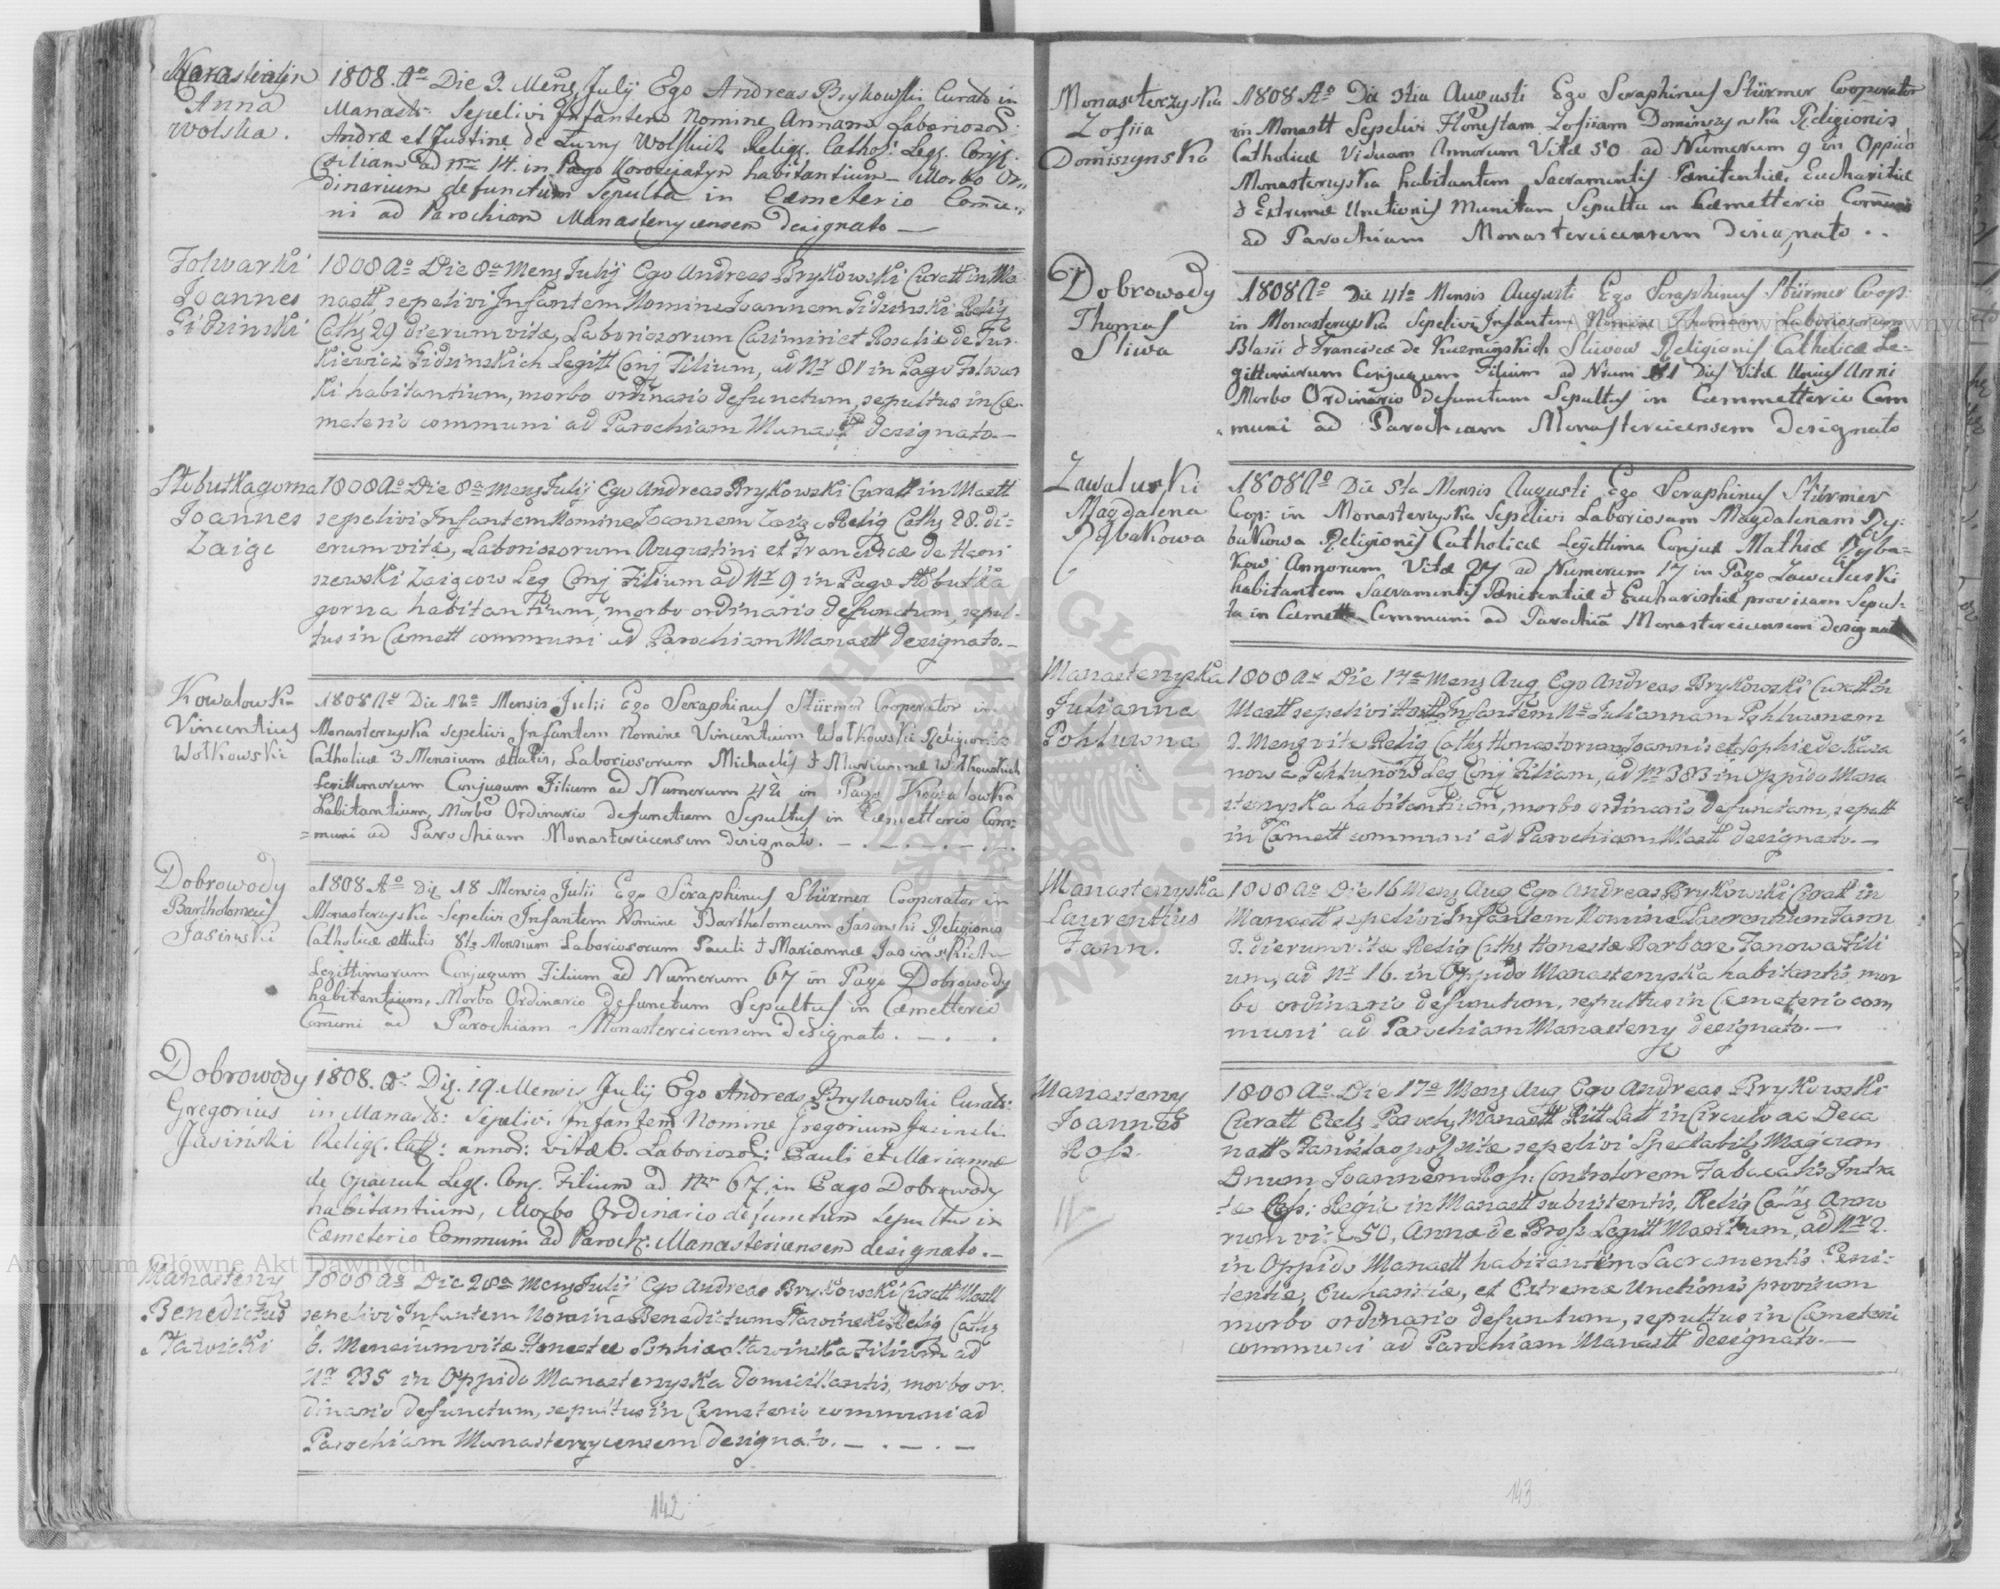 Anna
Wolska.
1808. Ao Die 3. Mens July Ego Andreas Brykowski Curato in
Manast: Sepelivi Infantem Nomine Annam Laboriosor:
Andræ et Justine de Turny Wolskich Relig. Cathol: Leg. Conj.
Filiam ad Nro 14. in Pago Korościatyn habitantium Morbo Or-
dinarium defunctum Sepulta in Cæmeterio Comu-
ni ad Parochiam Manastenycensem designato
Folwarki
Joannes
Gidzinski
1808 Ao Die 8a Mens Julij Ego Andreas Brykowski Curatt in Ma-
nastt, sepelivi Infantem Nomine Joannem Gidzinski Relig
Cath 29 dierum vitæ, Laboriosorum Casimiri et Rosaliæ de Tur-
kiewicz Gidzinskich Legitt Conj Filium, ad Nr 81 in Pago Folwar
ki habitantium, morbo ordinario defunctum, sepultus in Cæ-
meterio communi ad Parochiam Manastt designato
Słobutka gorna
Joannes
Zaige
1808 Ao Die 8a Mens Julij Ego Andreas Brykowski Curatt in Mastt
sepelivi Infantem Nomine Joannem Relig Cath 28. di-
erum vitæ, Laboriosorum Augustini et Franciscæ de Hani
szewski Zaigcow Leg Conj Filium ad Nr 9 in Pago Słobutka
gorna habitantium, morbo ordinario defunctum, sepul-
tus in Cæmett communi ad Parochiam Manastt designato.
Kowalowka
Vincentius
Wołkowski
1808 Ao Die 12a Mensis Julii Ego Seraphinus Stürmer Cooperator in
Monasteryska Sepelivi Infantem Nomine Vincentium Wołkowski Religionis
Catholicæ 3 Mensium ætatis, Laboriosorum Michaelis & Mariannæ Wołkowskich
Legittimorum Conjugum Filium ad Numerum 42 in Pago Kowalowka
habitantium, Morbo Ordinario defunctum Sepultus in Cæmetterio Com-
muni ad Parochiam Monastercicensem designato.
Dobrowody
Bartholomeus
Jasinski
1808 Ao Die 18 Mensis Julii Ego Seraphinus Stürmer Cooperator in
Monasteryska Sepelivi Infantem Nomine Bartholomeum Jasinski Religionis
Catholicæ ættatis Mensium Laboriosorum Pauli & Mariannæ Jasinskich
Legittimorum Conjugum Filium ad Numerum 67 in Pago Dobrowody
habitantium, Morbo Ordinario defunctum Sepultus in Cæmetterio
Comuni ad Parochiam Monastercicensem designato.
Dobrowody
Gregorius
Jasiński
1808. Ao Die 19. Mensis July Ego Andreas Brykowski Curatt:
in Manast: Sepelivi Infantem Nomine Gregorium Jasinski
Relig. Cath: annor: vitæ 6. Laborios: Pauli et Mariannæ
de Leg. Conj. Filium ad Nro 67. in Pago Dobrowody
habitantium, Morbo Ordinario defunctum Sepultus in
Cæmeterio Communi ad Paroch. Manasteriensem designato.
Manasteny
Benedictus
Stawicki
1808 Ao Die 28a Mens Julij Ego Andreas Brykowski Curatt Mastt
sepelivi Infantem Nomine Benedictum Relig Cath
6. Mensium vitæ Honestæ Sophiæ Filium ad
Nr 235 in Oppido Manastenyska domicillantis, morbo or-
dinario defunctum, sepultus in Cæmeterio communi ad
Parochiam Manastenycensem designato.
142
Monasterzyska
Zofiia
Domiszynska
1808 Ao Die 3tia Augusti Ego Seraphinus Stürmer Cooperator
in Monastt Sepelivi Honestam Zofiiam Religionis
Catholicæ Viduam Annorum Vitæ 50 ad Numerum 9 in Oppido
Monasteryska habitantem Sacramentis Pænitentiæ, Eucharitiæ
& Extremæ Unctionis Munitam Sepulta in Cæmetterio Comuni
ad Parochiam Monastercicensem designato..
Dobrowody
Thomas
Sliwa
1808 Ao Die 4ta Mensis Augusti Ego Seraphinus Stürmer Coop:
in Monasteryska Sepelivi Infantem Nomine Thomam Laboriosorum
Blasii & Franciscæ de Kuzmińskich Sliwow Religionis Catholicæ Le-
gittimorum Conjugum Filium ad Nrum Vitæ Unius Anni
Morbo Ordinario defunctum Sepultus in Cæmetterio Com
muni ad Parochiam Monastercicensem designato
Zawaluski
Magdalena
Rybakowa
1808 Ao Die 5ta Mensis Augusti Ego Seraphinus Stürmer
Coop: in Monasteryska Sepelivi Laboriosam Magdalenam Ry-
bakowa Religionis Catholicæ Legittima Conjux Mathiæ Ryba-
kow Annorum Vitæ 27 ad Numerum 17 in Pago Zawaluski
habitantem Sacramentis Pænitentiæ & Eucharistiæ provisam Sepul-
ta in Cæmett Communi ad Parochiã Monastercicensem designato
Manastenyska
Julianna
Pohluwna
1808 Ao Die 17a Mens Aug, Ego Andreas Brykowski Curatt in
Mastt sepelivi Infantem Ne Juliannam Pohluwnam
Mens vitæ Relig Cath Honestorum Joannis et Sophiæ de
Leg Conj Filiam, ad Nr 383 in Oppido Mana
stenyska habitantium, morbo ordinario defunctam, sepult
in Cæmett communi ad Parochiam Mastt designato.
Manastenyska
Laurentius
Fann.
1808 Ao Die 16 Mens Aug Ego Andreas Brykowski Curatt in
Manastt sepelivi Infantem Nomine Laurentium Fann
dierum vitæ Relig Cath Honestæ Barbaræ Fanowa Fili
um, ad Nr 16. in Oppido Manastenyska habitantis, mor
bo ordinario defunctum, sepultus in Cæmeterio com
muni ad Parochiam Manasteny designato.
Manasteny
Joannes
Ross.
1808 Ao Die 17a Mens Aug Ego Andreas Brykowski
Curatt Eccls Paroch Manastt Ritt Latt in Circulo ac Deca
natt Stanislaopol sitæ sepelivi Spectabils Magcum
Dnum Joannem Ross: Controlorem Tabacalis Intra
Regiæ in Manastt subsistentis, Relig Cath Anno
rum vitæ 50, Annæ de Bross Legitt Maritum, ad Nr 2.
in Oppido Manastt habitantem Sacramentis Peni-
tentiæ, Eucharitiæ, et Extremæ Unctionis provisum
morbo ordinario defunctum, sepultus in Cæmeteri
communi ad Parochiam Manastt designato.
143
Archiwum Główne Akt Dawnych
Archiwum Główne Akt Dawnych